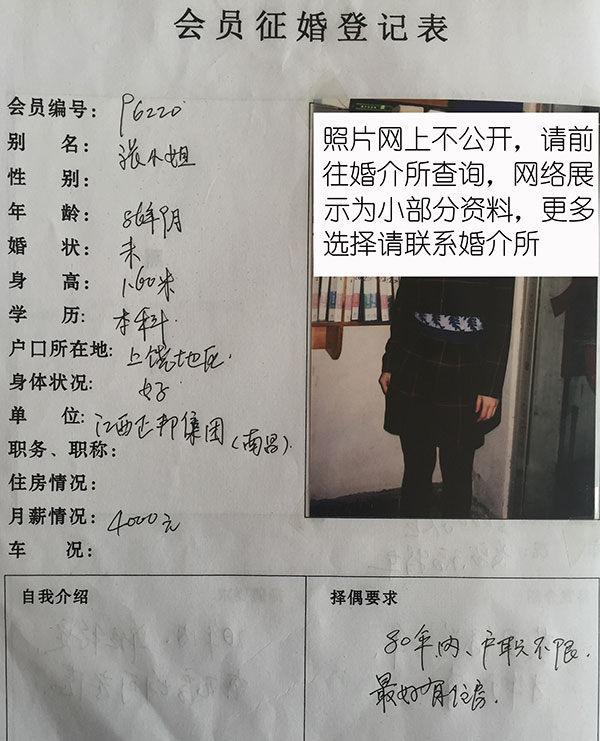 会员征婚登记表
会员编号: P6220
别 名: 张小姐
性 别:
年 龄: 86年9月
婚 状: 未
身 高: 1.60米
学 历: 本科
户口所在地: 上饶地区
身体状况: 好
单 位: 江西正邦集团(南昌)
职务、职称:
住房情况:
月薪情况: 4000元
车 况:
照片网上不公开，请前
往婚介所查询，网络展
示为小部分资料，更多
选择请联系婚介所
自我介绍
择偶要求
80年内、户职不限.
最好有住房.